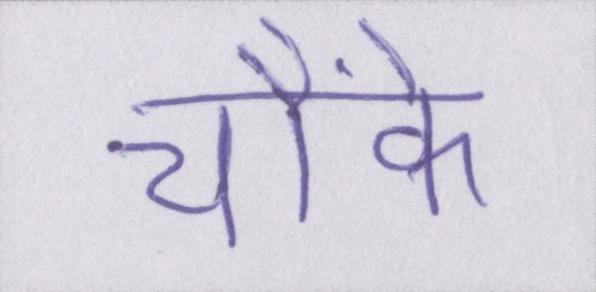 चौंके